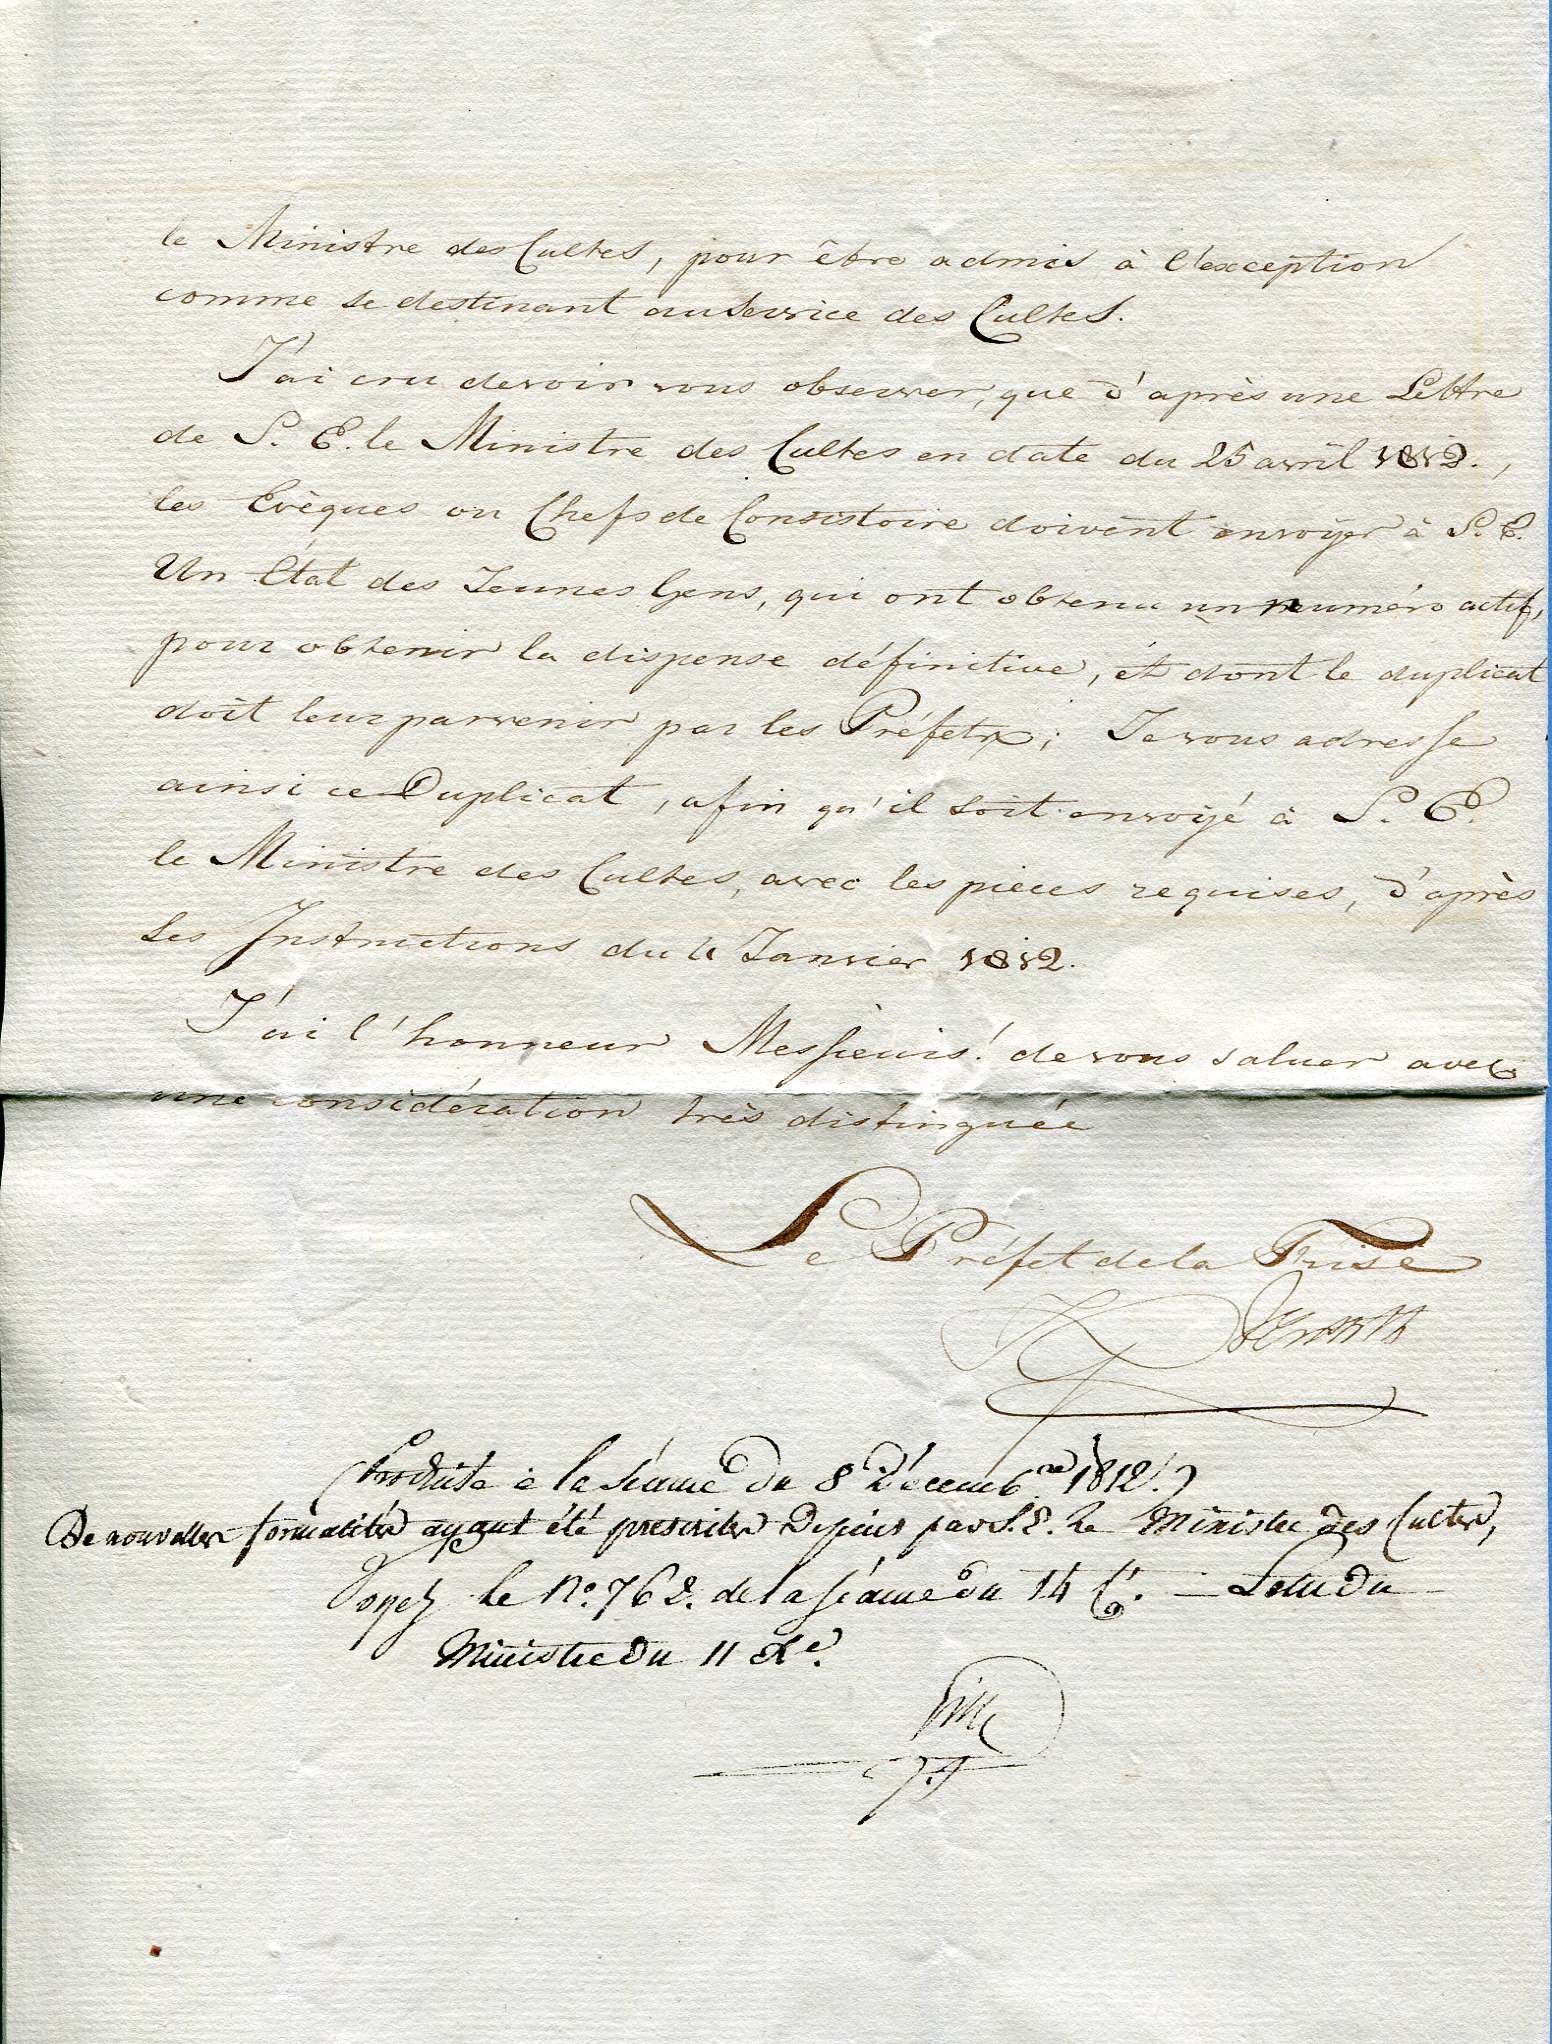 le Ministre des Cultes, pour être admis à l'exception
comme se destinant au Service des Cultes.
J'ai cru devoir vous observer, que d'après une Lettre
de S. E. le Ministre des Cultes en date du 25 avril 1812.,
les Evèques ou Chefs de Consistoire doivent envoyer à S. E.
Un Etat des Jeunes Gens, qui ont obtenu un numéro actif,
pour obtenir la dispense définitive, et dont le duplicat
doit leur parvenir par les Préfets; Je vous adresse
ainsi ce Duplicat, afin qu'il soit envoyé à S. E.
le Ministre des Cultes, avec les pieces requises, d'après
les Instructions du 11 Janvier 1812.
J'ai l'honneur Messieurs! de vous saluer avec
une considération très distinguée
Le Préfet de la Frise
(Produite à la séance du 8 Décemb.re 1812.)
De nouvelles formalités ayant été prescrites depuis par S. E. le Ministre des Cultes,
Voyez le No. 762. de la séance du 14 Ct. — Lettre du —
Ministre du 11 Xe.